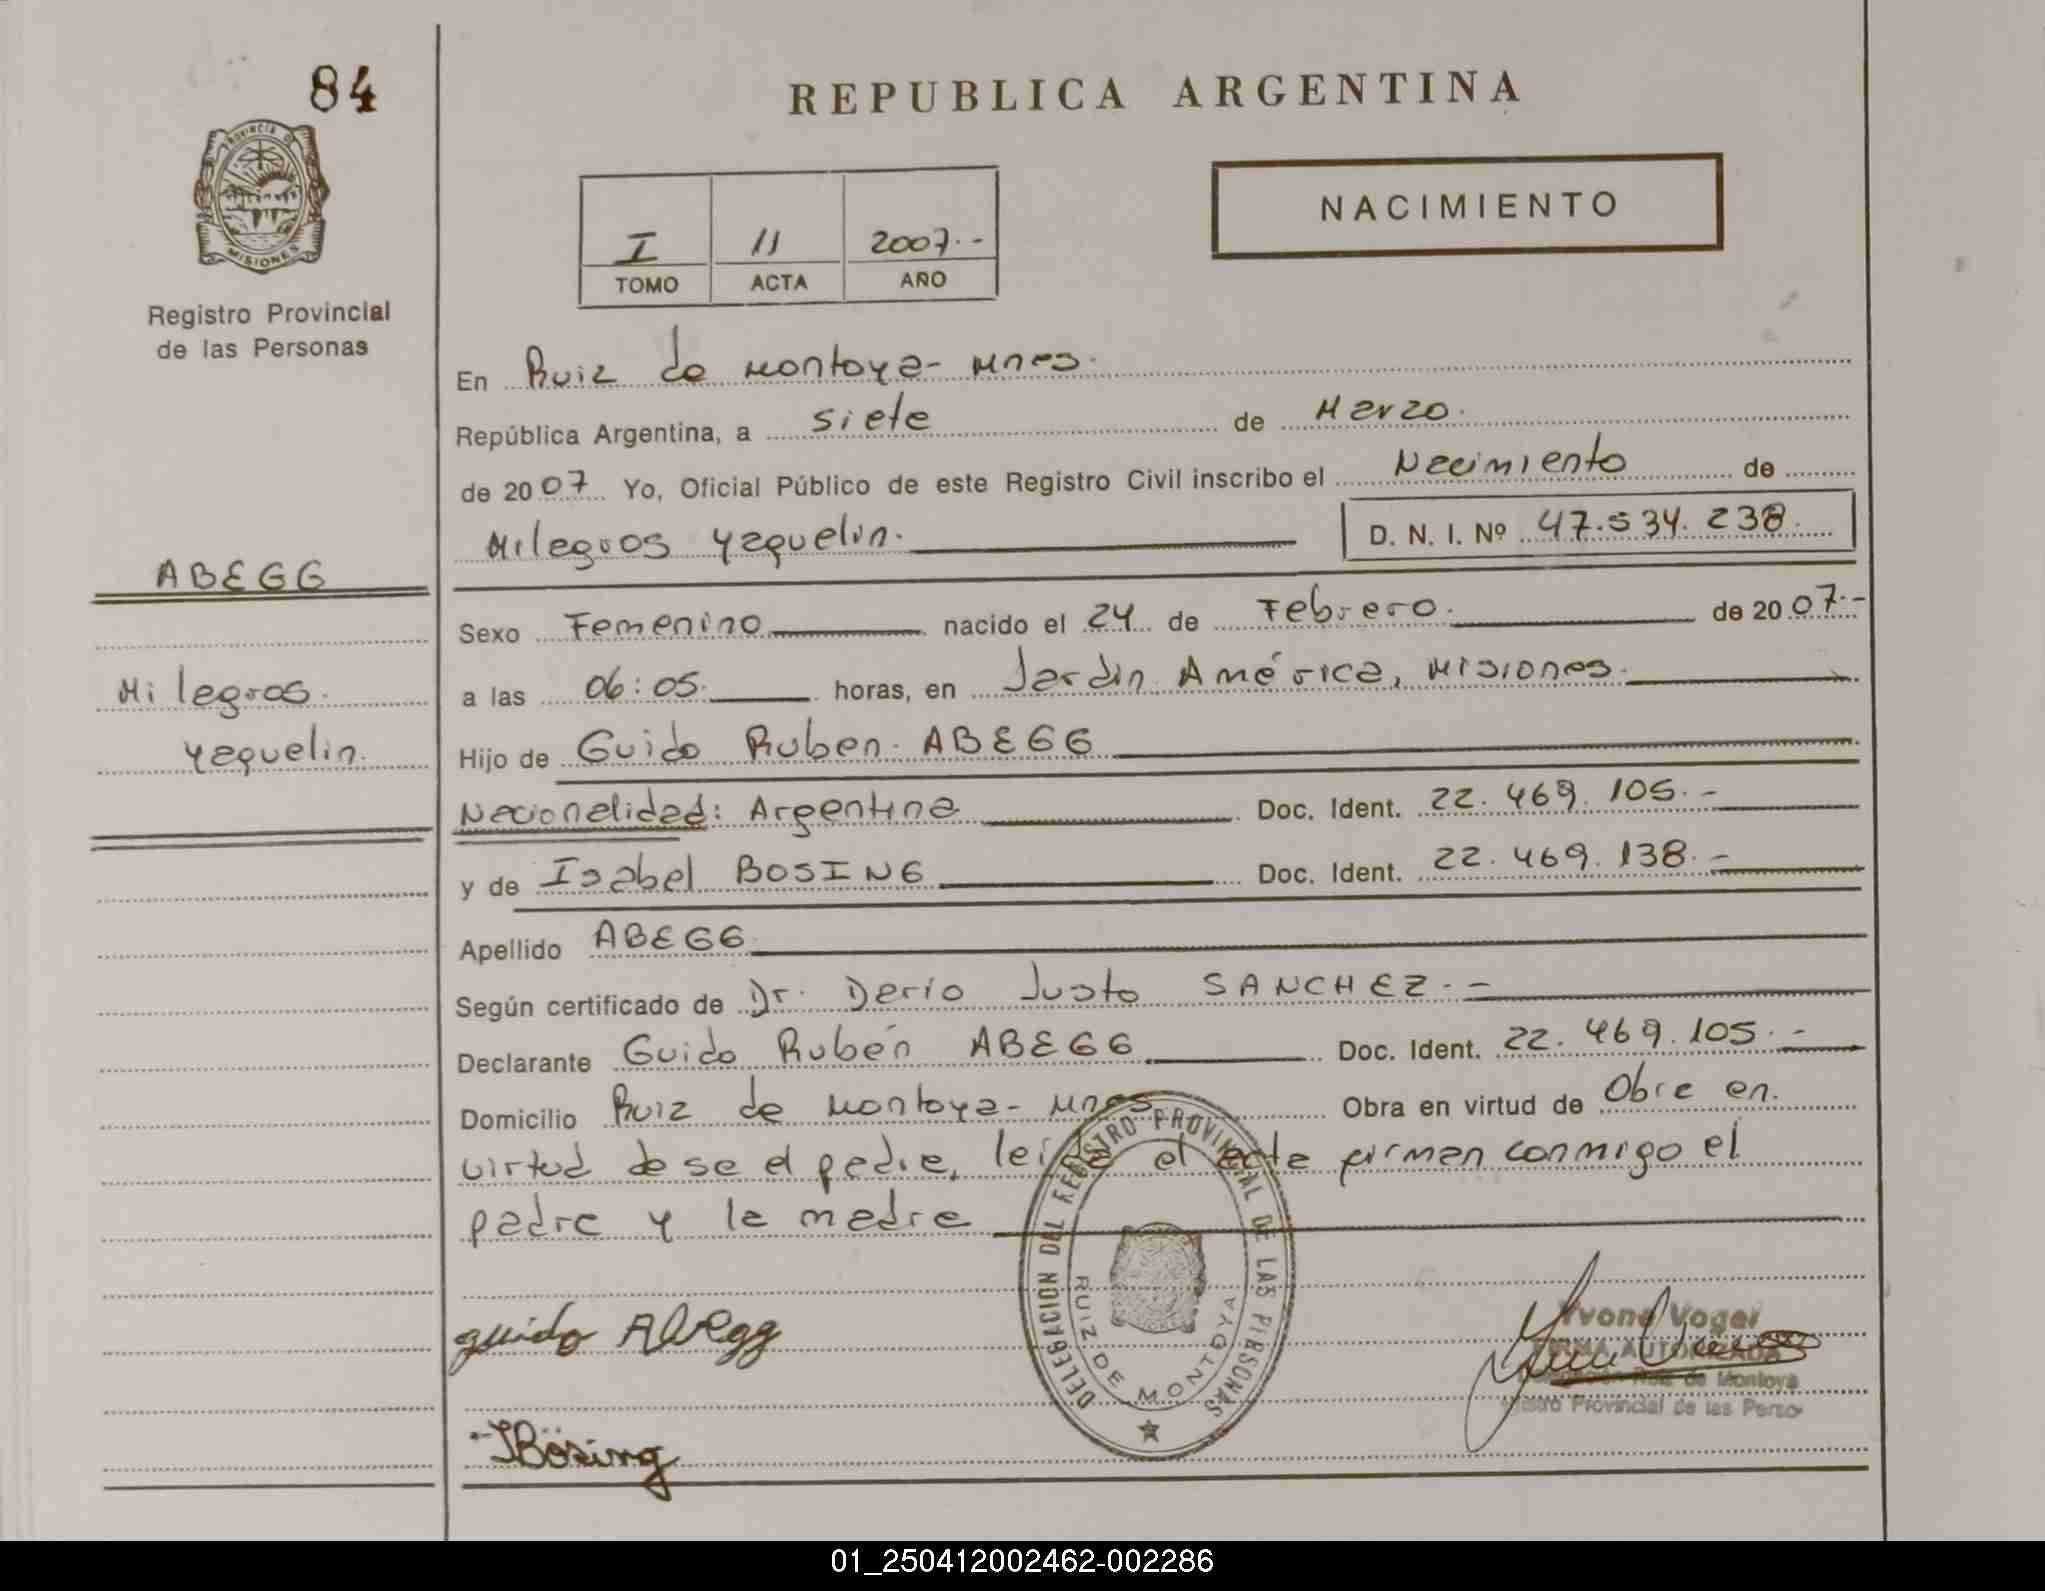 84
REPUBLICA ARGENTINA
PROVINCIA D
MISIONES
Registro Provincial
de las Personas
I 11 2007.-
TOMO ACTA AÑO
NACIMIENTO
En Ruiz de Montoya- Mnes.
República Argentina, a siete de Marzo.
de 2007 Yo, Oficial Público de este Registro Civil inscribo el Nacimiento de
Milagros Yaquelin. D. N. I. Nº 47.534.238.
ABEGG
Milagros.
Yaquelin.
Sexo Femenino nacido el 24 de Febrero. de 2007.-
a las 06:05. horas, en Jardin América, Misiones.
Hijo de Guido Ruben. ABEGG
Nacionalidad: Argentina Doc. Ident. 22.469.105.-
y de Isabel BOSING Doc. Ident. 22.469.138.-
Apellido ABEGG
Según certificado de Dr. Dario Justo SANCHEZ.-
Declarante Guido Rubén ABEGG Doc. Ident. 22.469.105.-
Domicilio Ruiz de Montoya- Mnes Obra en virtud de Obra en
virtud de se el padre, leída el acta firman conmigo el
padre y la madre
DELEGACION DEL REGISTRO PROVINCIAL DE LAS PERSONAS
RUIZ DE MONTOYA
guido Abegg
Yvone Vogel
FIRMA AUTORIZADA
Ruiz de Montoya
Provincial de las Perso
IBösing
01_250412002462-002286